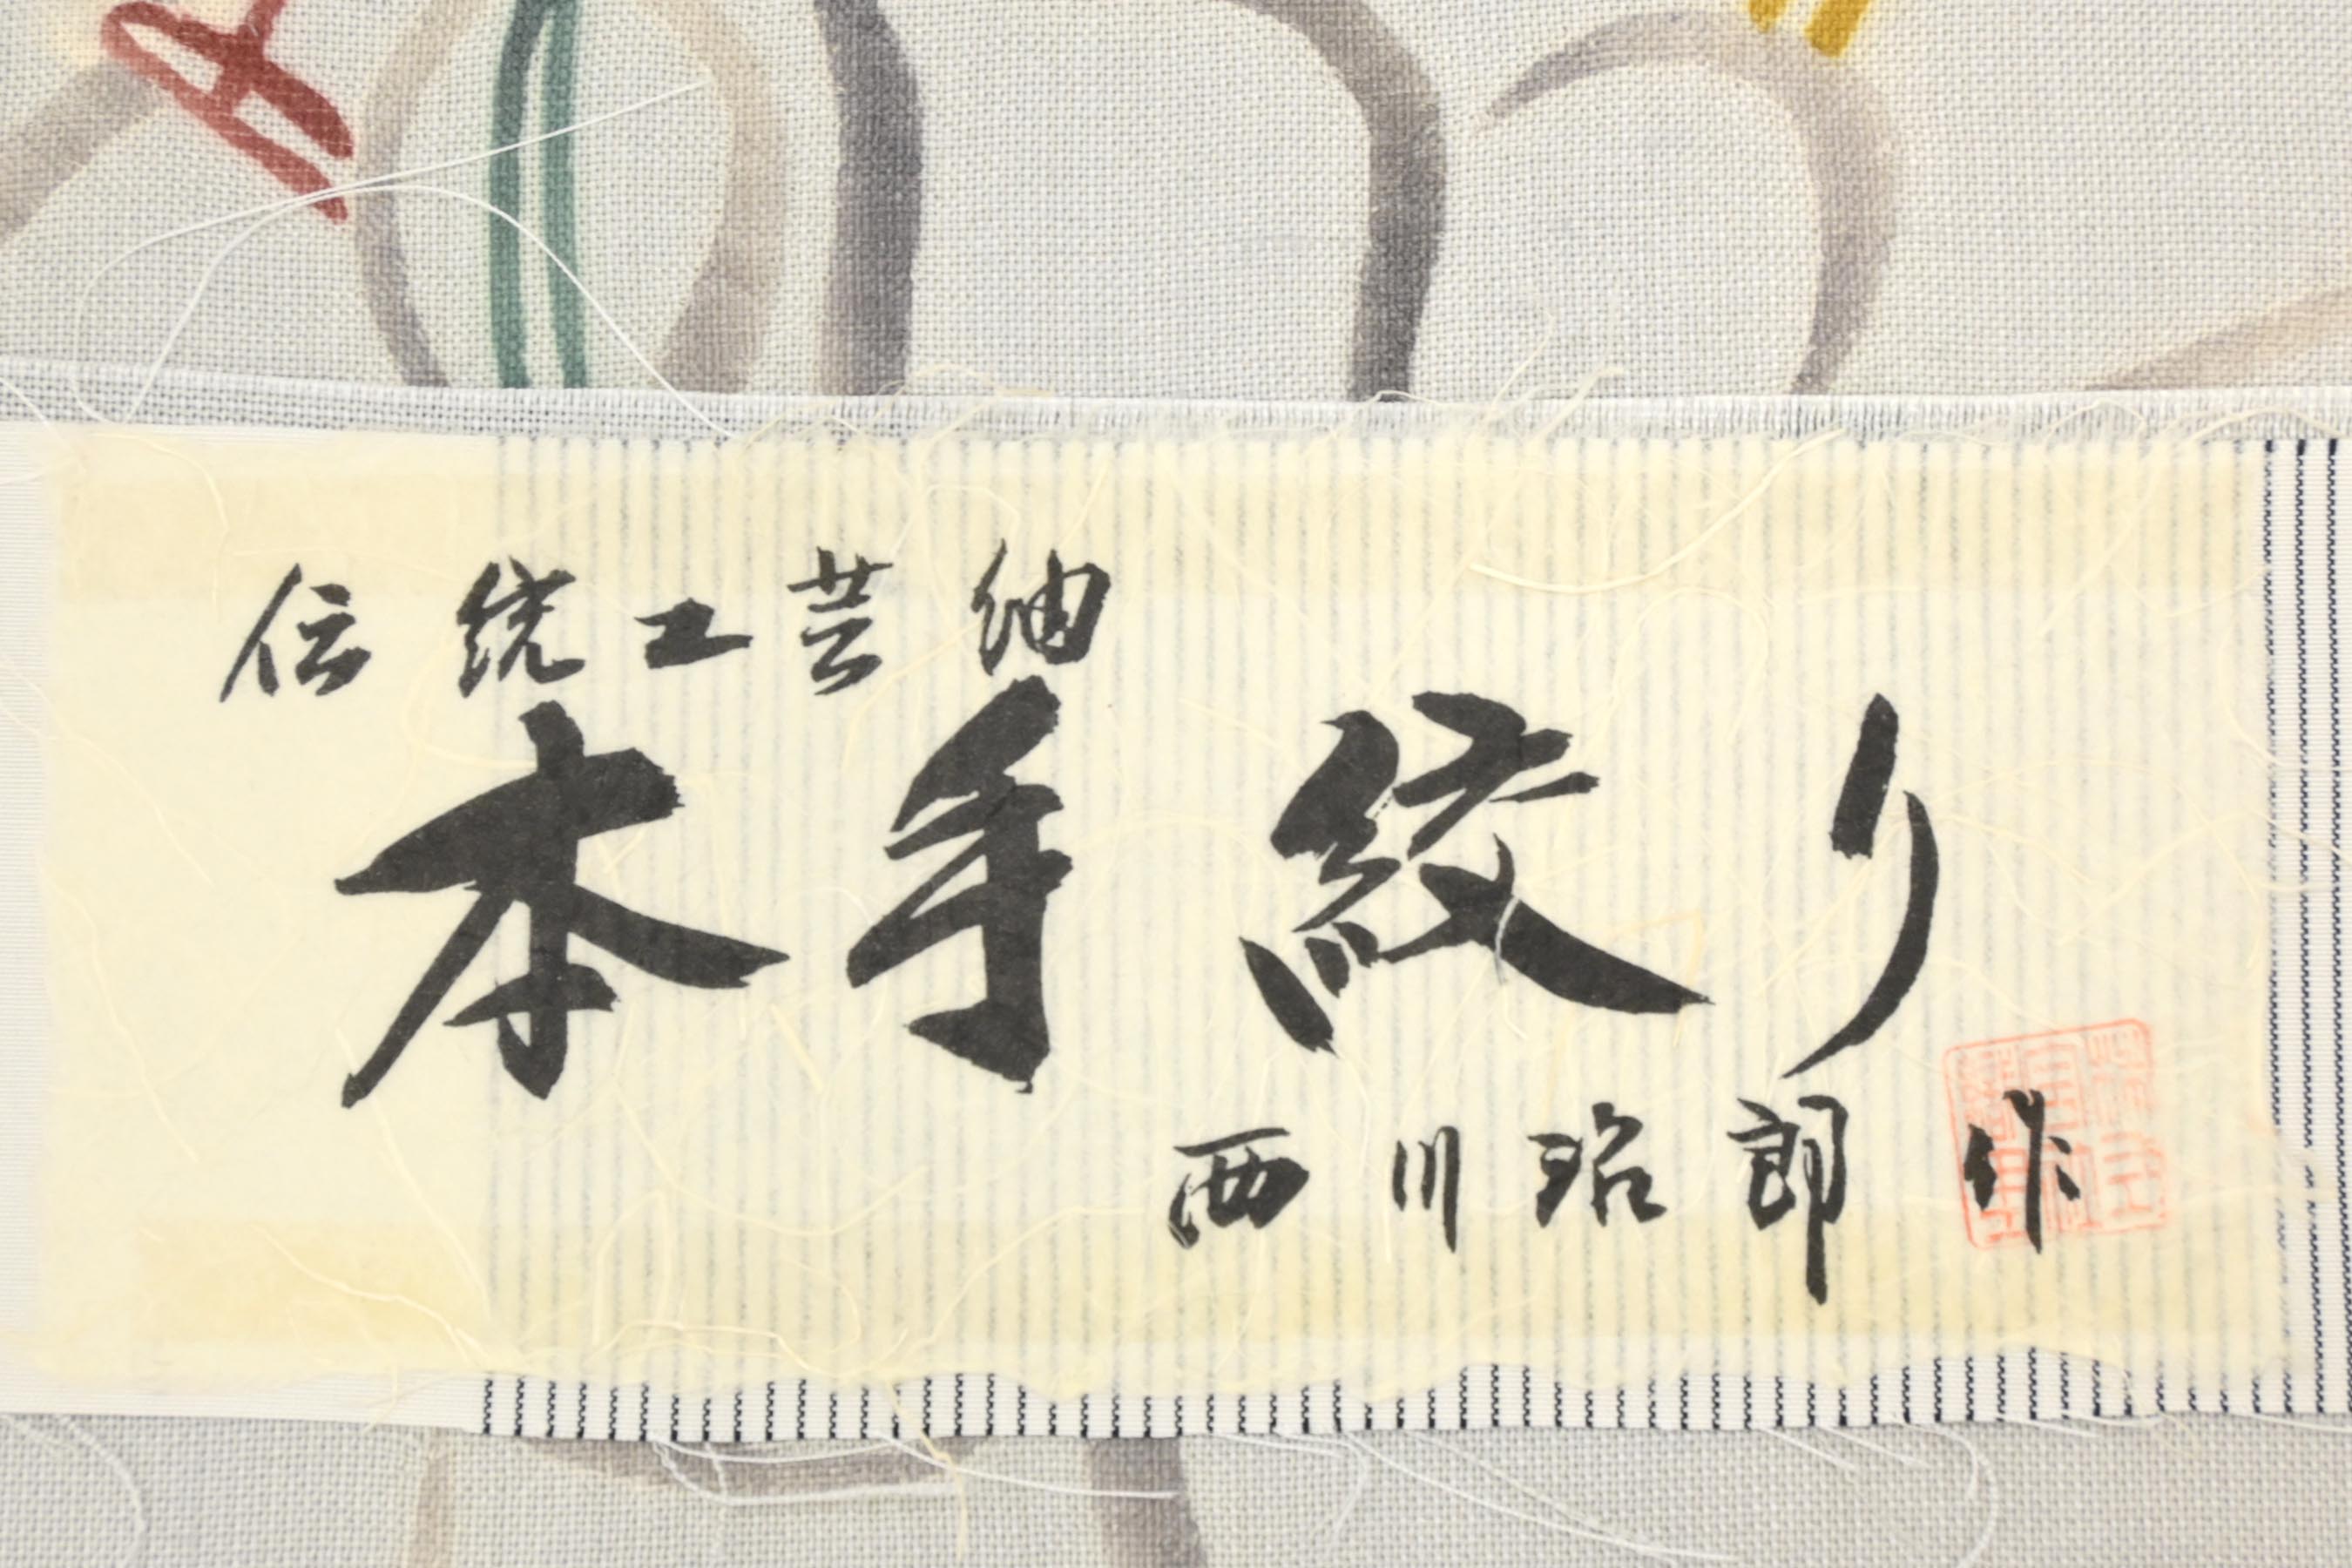 伝統工芸紬
本手絞り
西川玿郎作